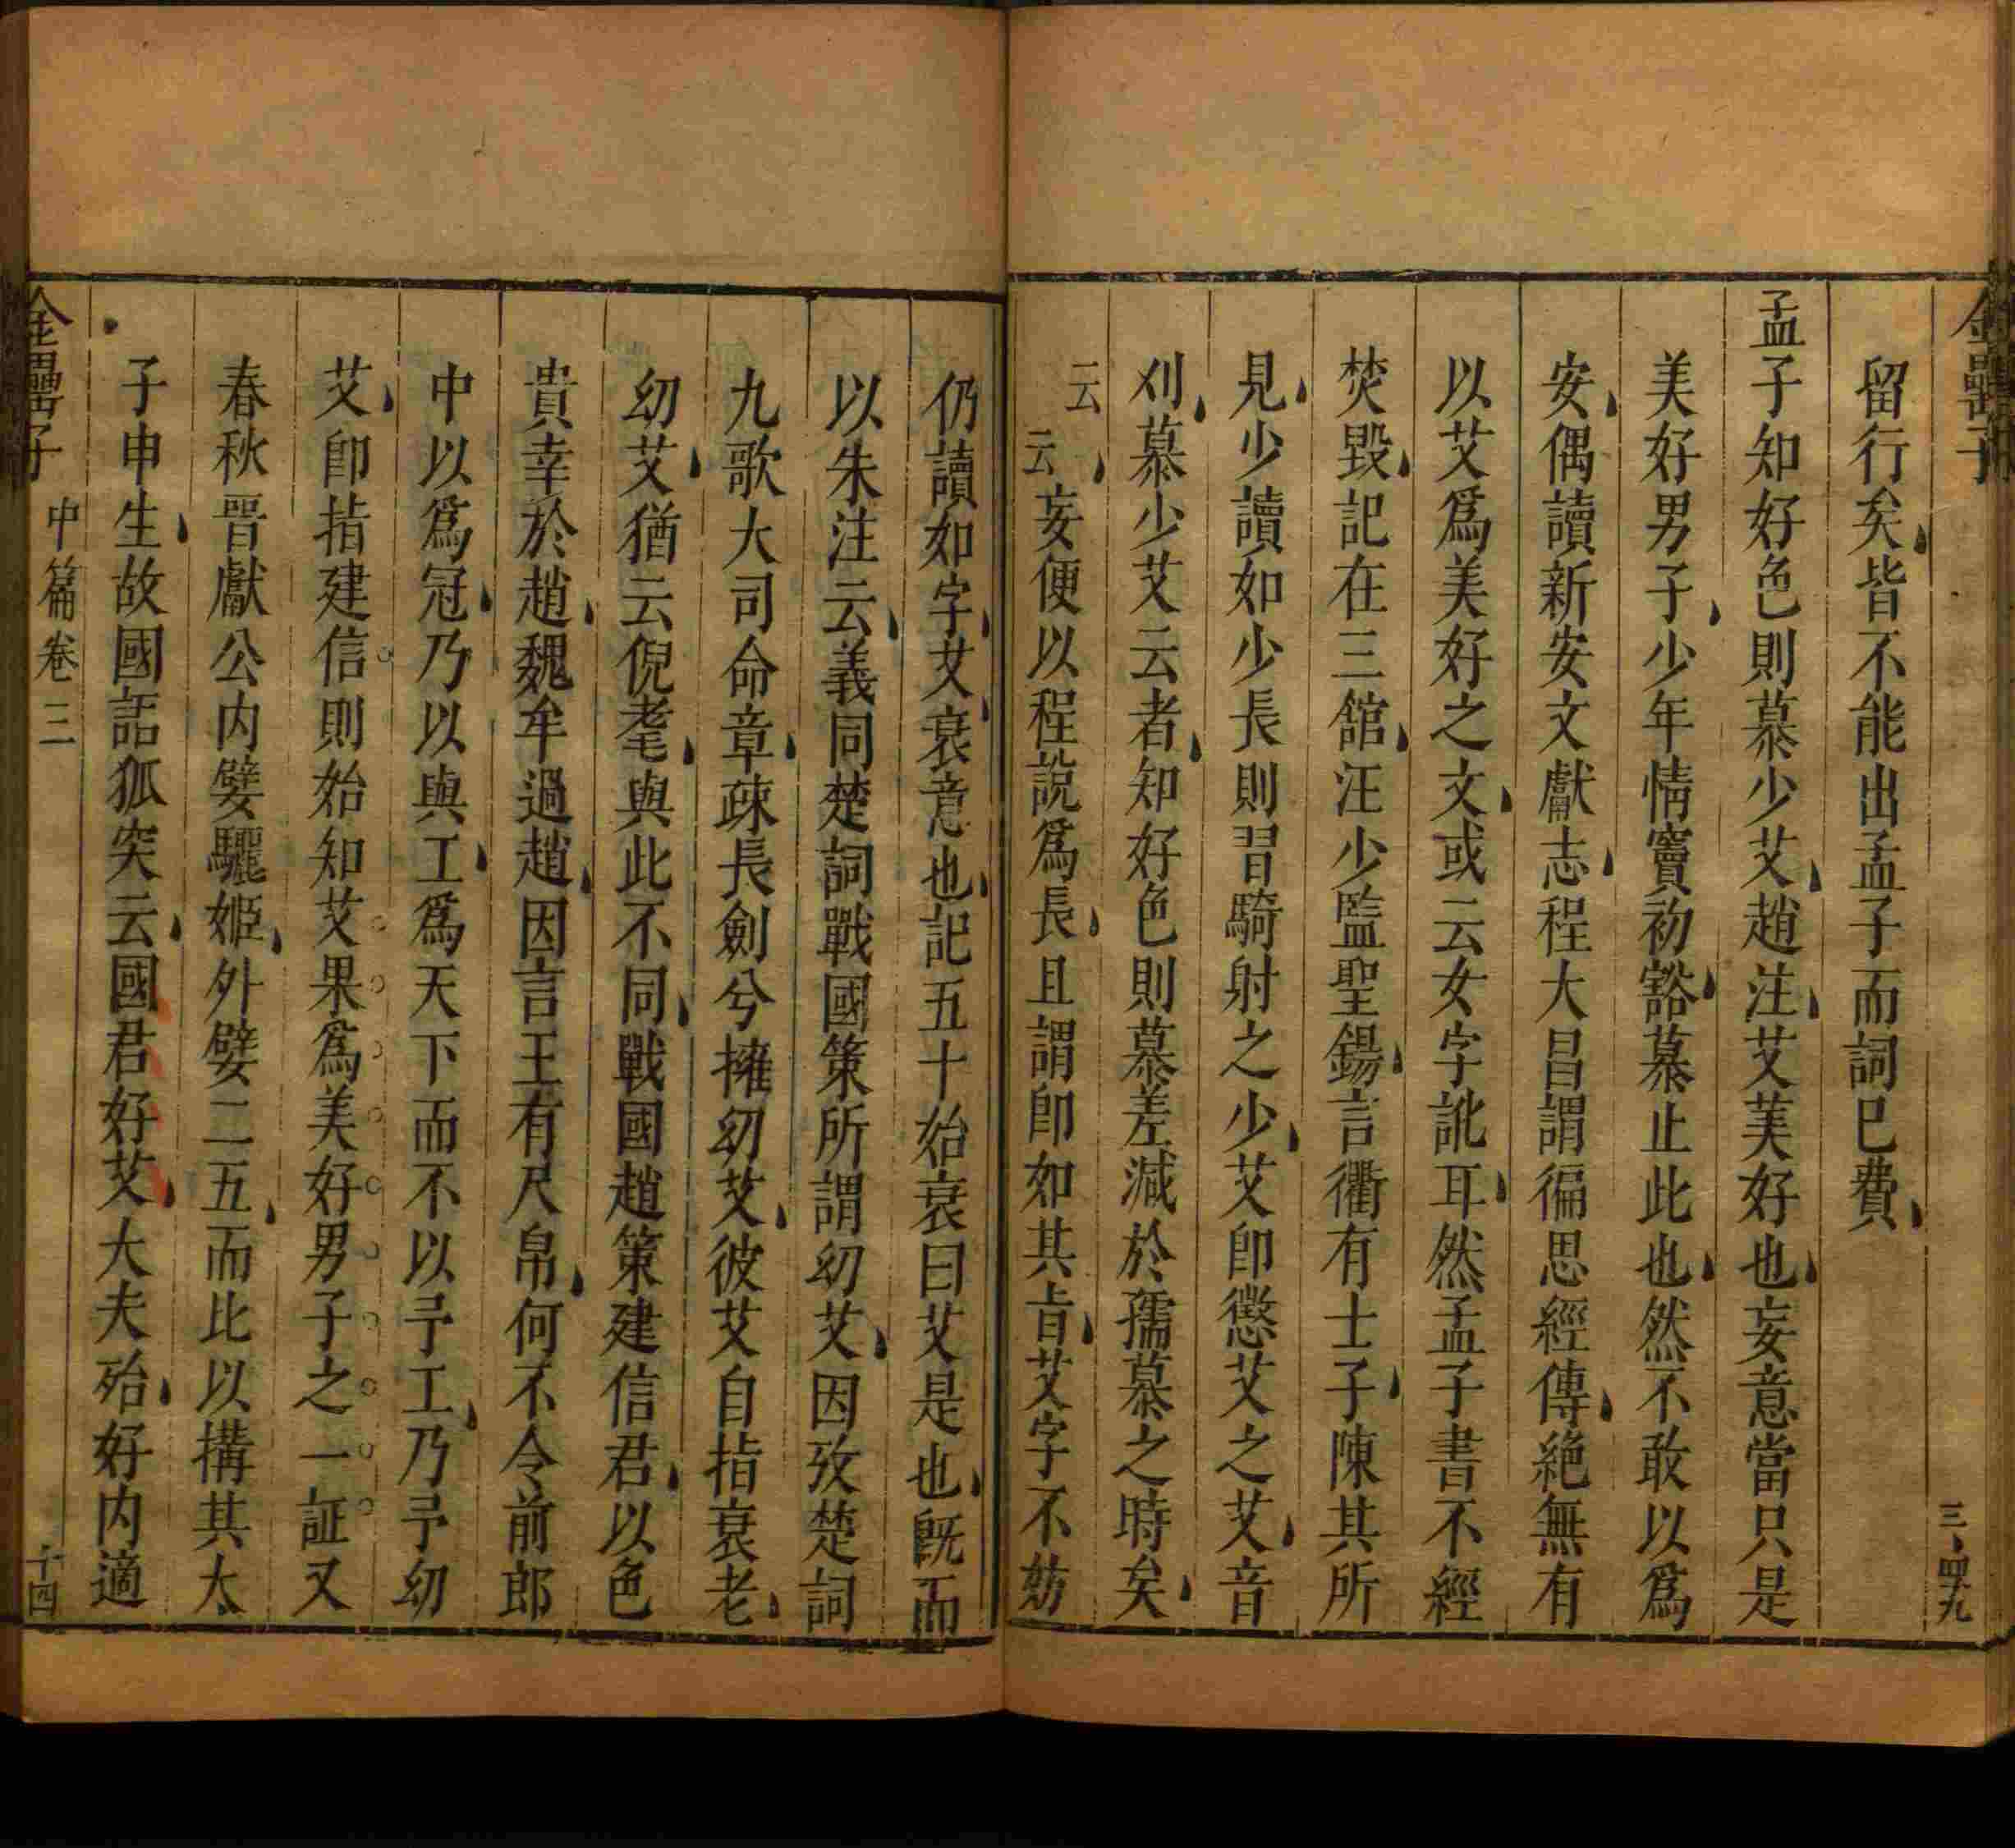 金罍子
三、四九
留行矣皆不能出孟子而詞已費
孟子知好色則慕少艾趙注艾美好也妄意當只是
美好男子少年情竇初豁慕止此也然不敢以爲
安偶讀新安文獻志程大昌謂徧思經傳絶無有
以艾爲美好之文或云女字訛耳然孟子書不經
焚毀記在三舘汪少監聖錫言衢有士子陳其所
見少讀如少長則習騎射之少艾即懲艾之艾音
刈慕少艾云者知好色則慕差減於孺慕之時矣
云云妄便以程說爲長且謂即如其㫖艾字不妨
仍讀如字艾衰意也記五十始衰曰艾是也既而
以朱注云義同楚詞戰國策所謂幼艾因攷楚詞
九歌大司命章疎長劍兮擁幼艾彼艾自指衰老
幼艾猶云倪耄與此不同戰國趙策建信君以色
貴幸於趙魏牟過趙因言王有尺帛何不令前郎
中以爲冠乃以與工爲天下而不以予工乃予幼
艾即指建信則始知艾果爲美好男子之一証又
春秋晋獻公内嬖驪姬外嬖二五而比以搆其太
子申生故國語狐突云國君好艾大夫殆好内適
金罍子
中篇卷三
十四